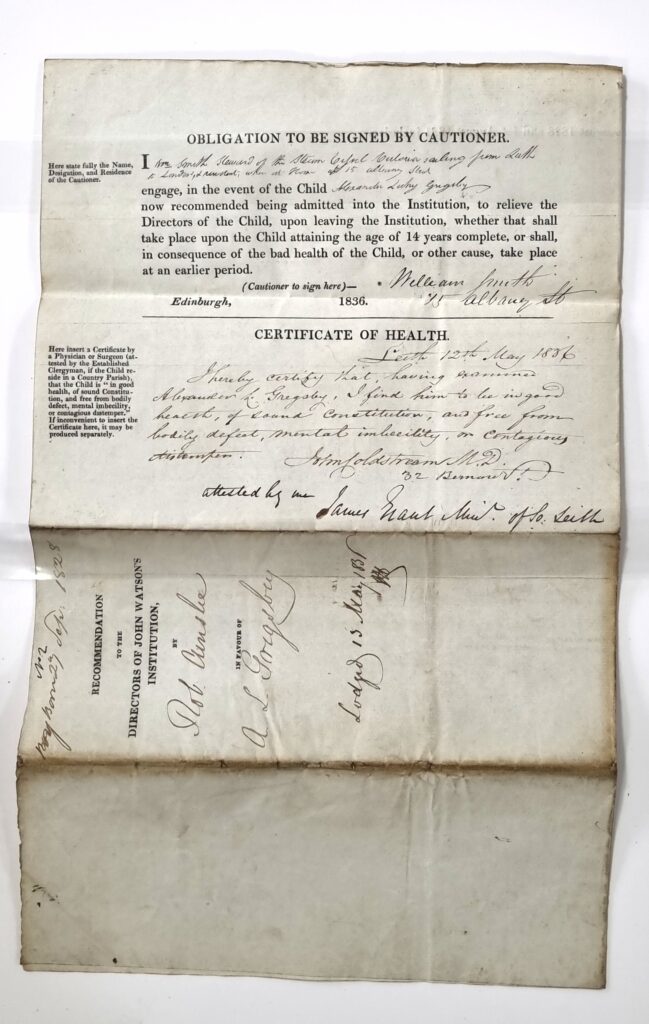 OBLIGATION TO BE SIGNED BY CAUTIONER.
Here state fully the Name,
Designation, and Residence
of the Cautioner.
I Wm Smith Steward of the Steam Vessel Victoria sailing from Leith
to London, & resident, when at Home at 15 Albany Street
engage, in the event of the Child Alexander Gregsby
now recommended being admitted into the Institution, to relieve the
Directors of the Child, upon leaving the Institution, whether that shall
take place upon the Child attaining the age of 14 years complete, or shall,
in consequence of the bad health of the Child, or other cause, take place
at an earlier period.
(Cautioner to sign here)— William Smith
Edinburgh, 1836. 15 Albany St
CERTIFICATE OF HEALTH.
Here insert a Certificate by
a Physician or Surgeon (at-
tested by the Established
Clergyman, if the Child re-
side in a Country Parish),
that the Child is " in good
health, of sound Constitu-
tion, and free from bodily
defect, mental imbecility,
or contagious distemper."
If inconvenient to insert the
Certificate here, it may be
produced separately.
Leith 12th May 1836
I hereby certify that, having examined
Alexander L. Gregsby, I find him to be in good
health, of sound Constitution, and free from
bodily defect, mental imbecility, or contagious
distemper. John Coldstream M.D.
32 Bernard St.
attested by me James Grant Minr. of So. Leith
Boy Born Sep. 1828
RECOMMENDATION
TO THE
DIRECTORS OF JOHN WATSON'S
INSTITUTION,
BY
Rob. Ainslie
IN FAVOUR OF
A L Gregsby
Lodged 13 May 1836